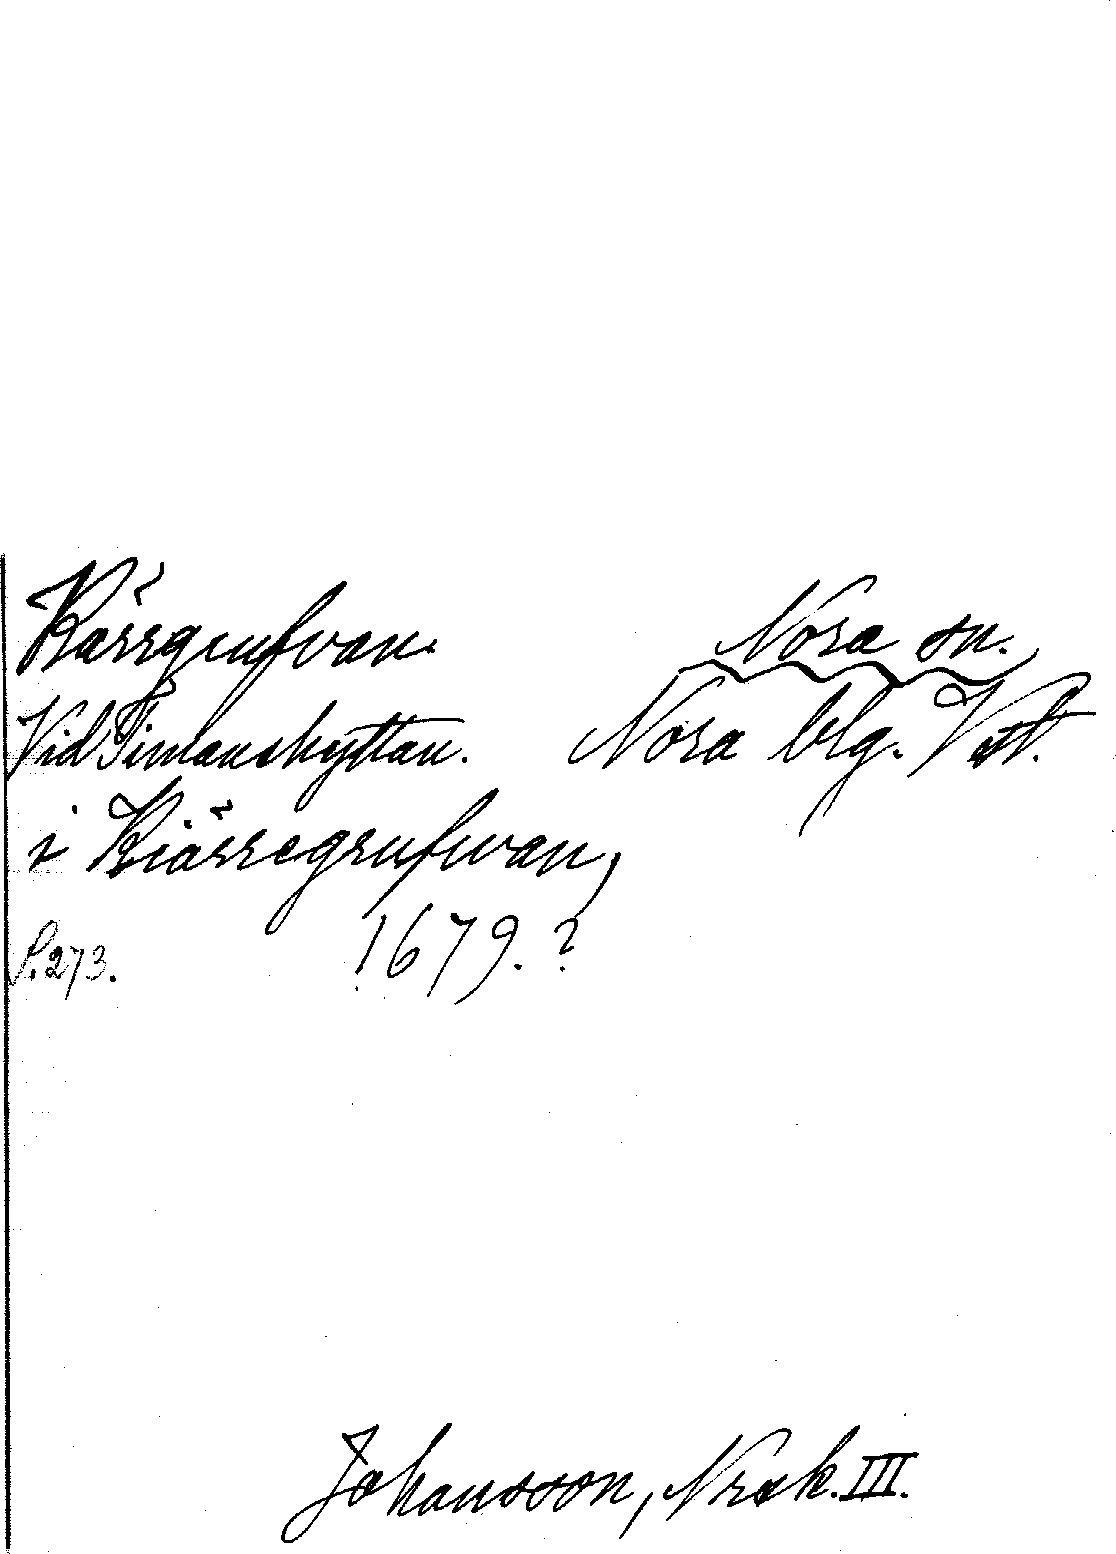 Kärrgrufvan. Nora sn.
Vid Timanshyttan. Nora blg. Vstl.
i Kiärregrufwan,
S. 273. 1679.?
Johansson, Nrsk. III.